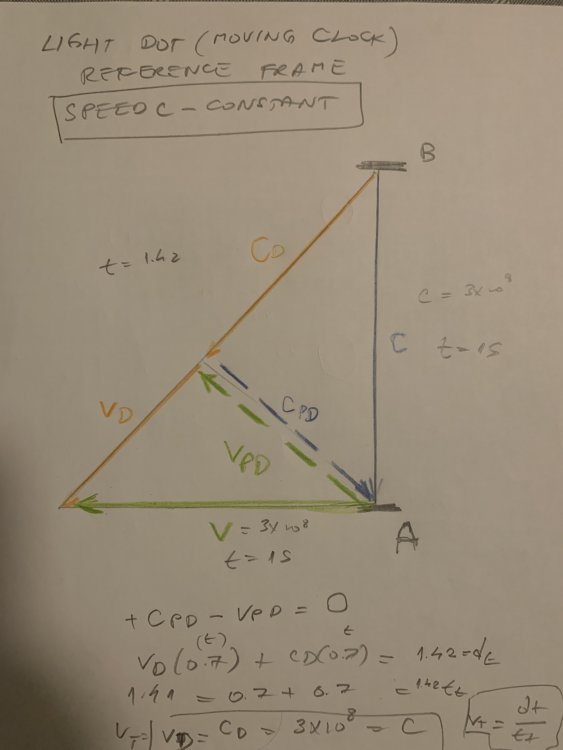 LIGHT DOT (MOVING CLOCK)
REFERENCE FRAME
SPEED C - CONSTANT
B
t = 1.42
CD
C = 3x10⁸
C
t = 1S
VD
CPD
VPD
V = 3x10⁸
t = 1S
A
+ CPD - VPD = 0
(t) t
VD(0.7) + CD(0.7) = 1.42 = dt
1.41 = 0.7 + 0.7 = 1.42 tt
VT = VD = CD = 3x10⁸ = C
VT = dt/tt